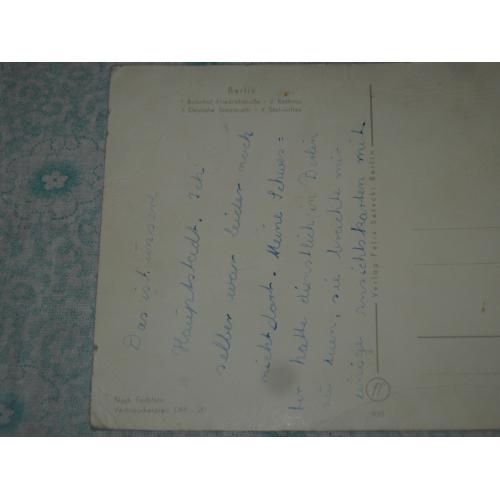 Berlin
1. Bahnhof Friedrichstraße - 2. Rathaus
3. Deutsche Staatsoper - 4. Stalinallee
Das ist unsere
Hauptstadt. Ich
selber war leider noch
nicht dort. Meine Schwes=
ter hatte dienstlich in Berlin
zu tuen, sie brachte mir
einige Ansichtskarten mit.
Verlag Felix Setecki Berlin
Nach Farbfoto
Verbraucherpreis DM -.20